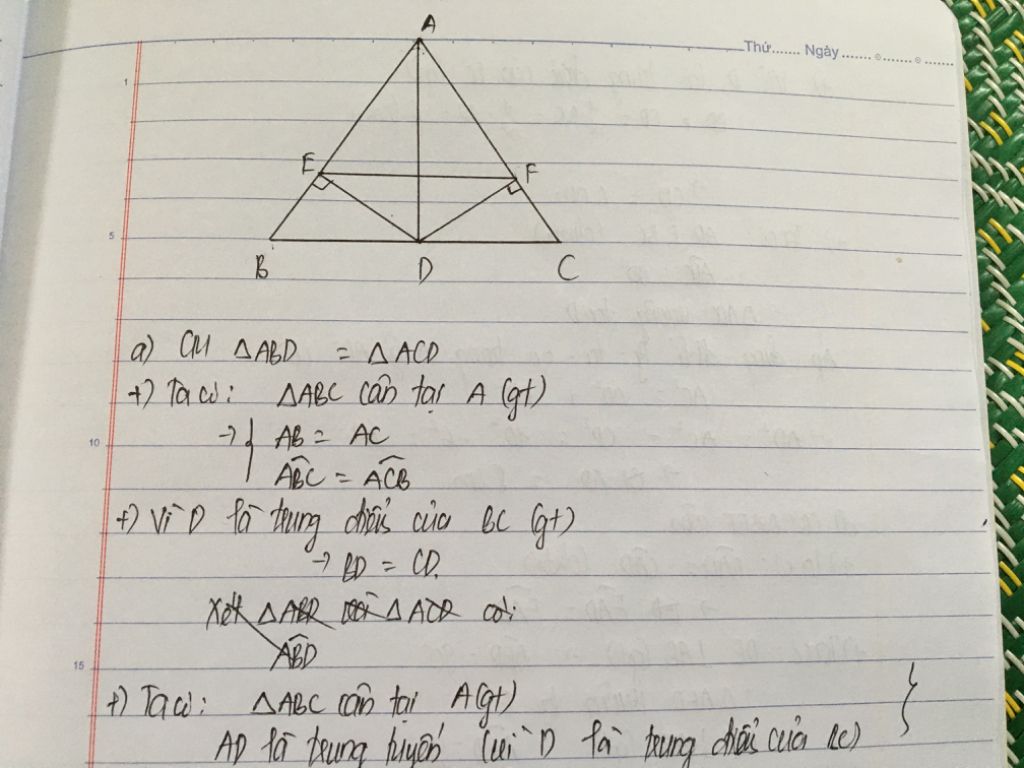 A
Thứ....... Ngày.......
1
E
F
5
B D C
a) CM △ABD = △ACD
+) Ta có: △ABC cân tại A (gt)
10
→ { AB = AC
ABC = ACB
+) Vì D là trung điểm của BC (gt)
→ BD = CD.
Xét △ABD với △ACD có:
ABD
15
+) Ta có: △ABC cân tại A (gt)
AD là trung tuyến (vì D là trung điểm của BC)